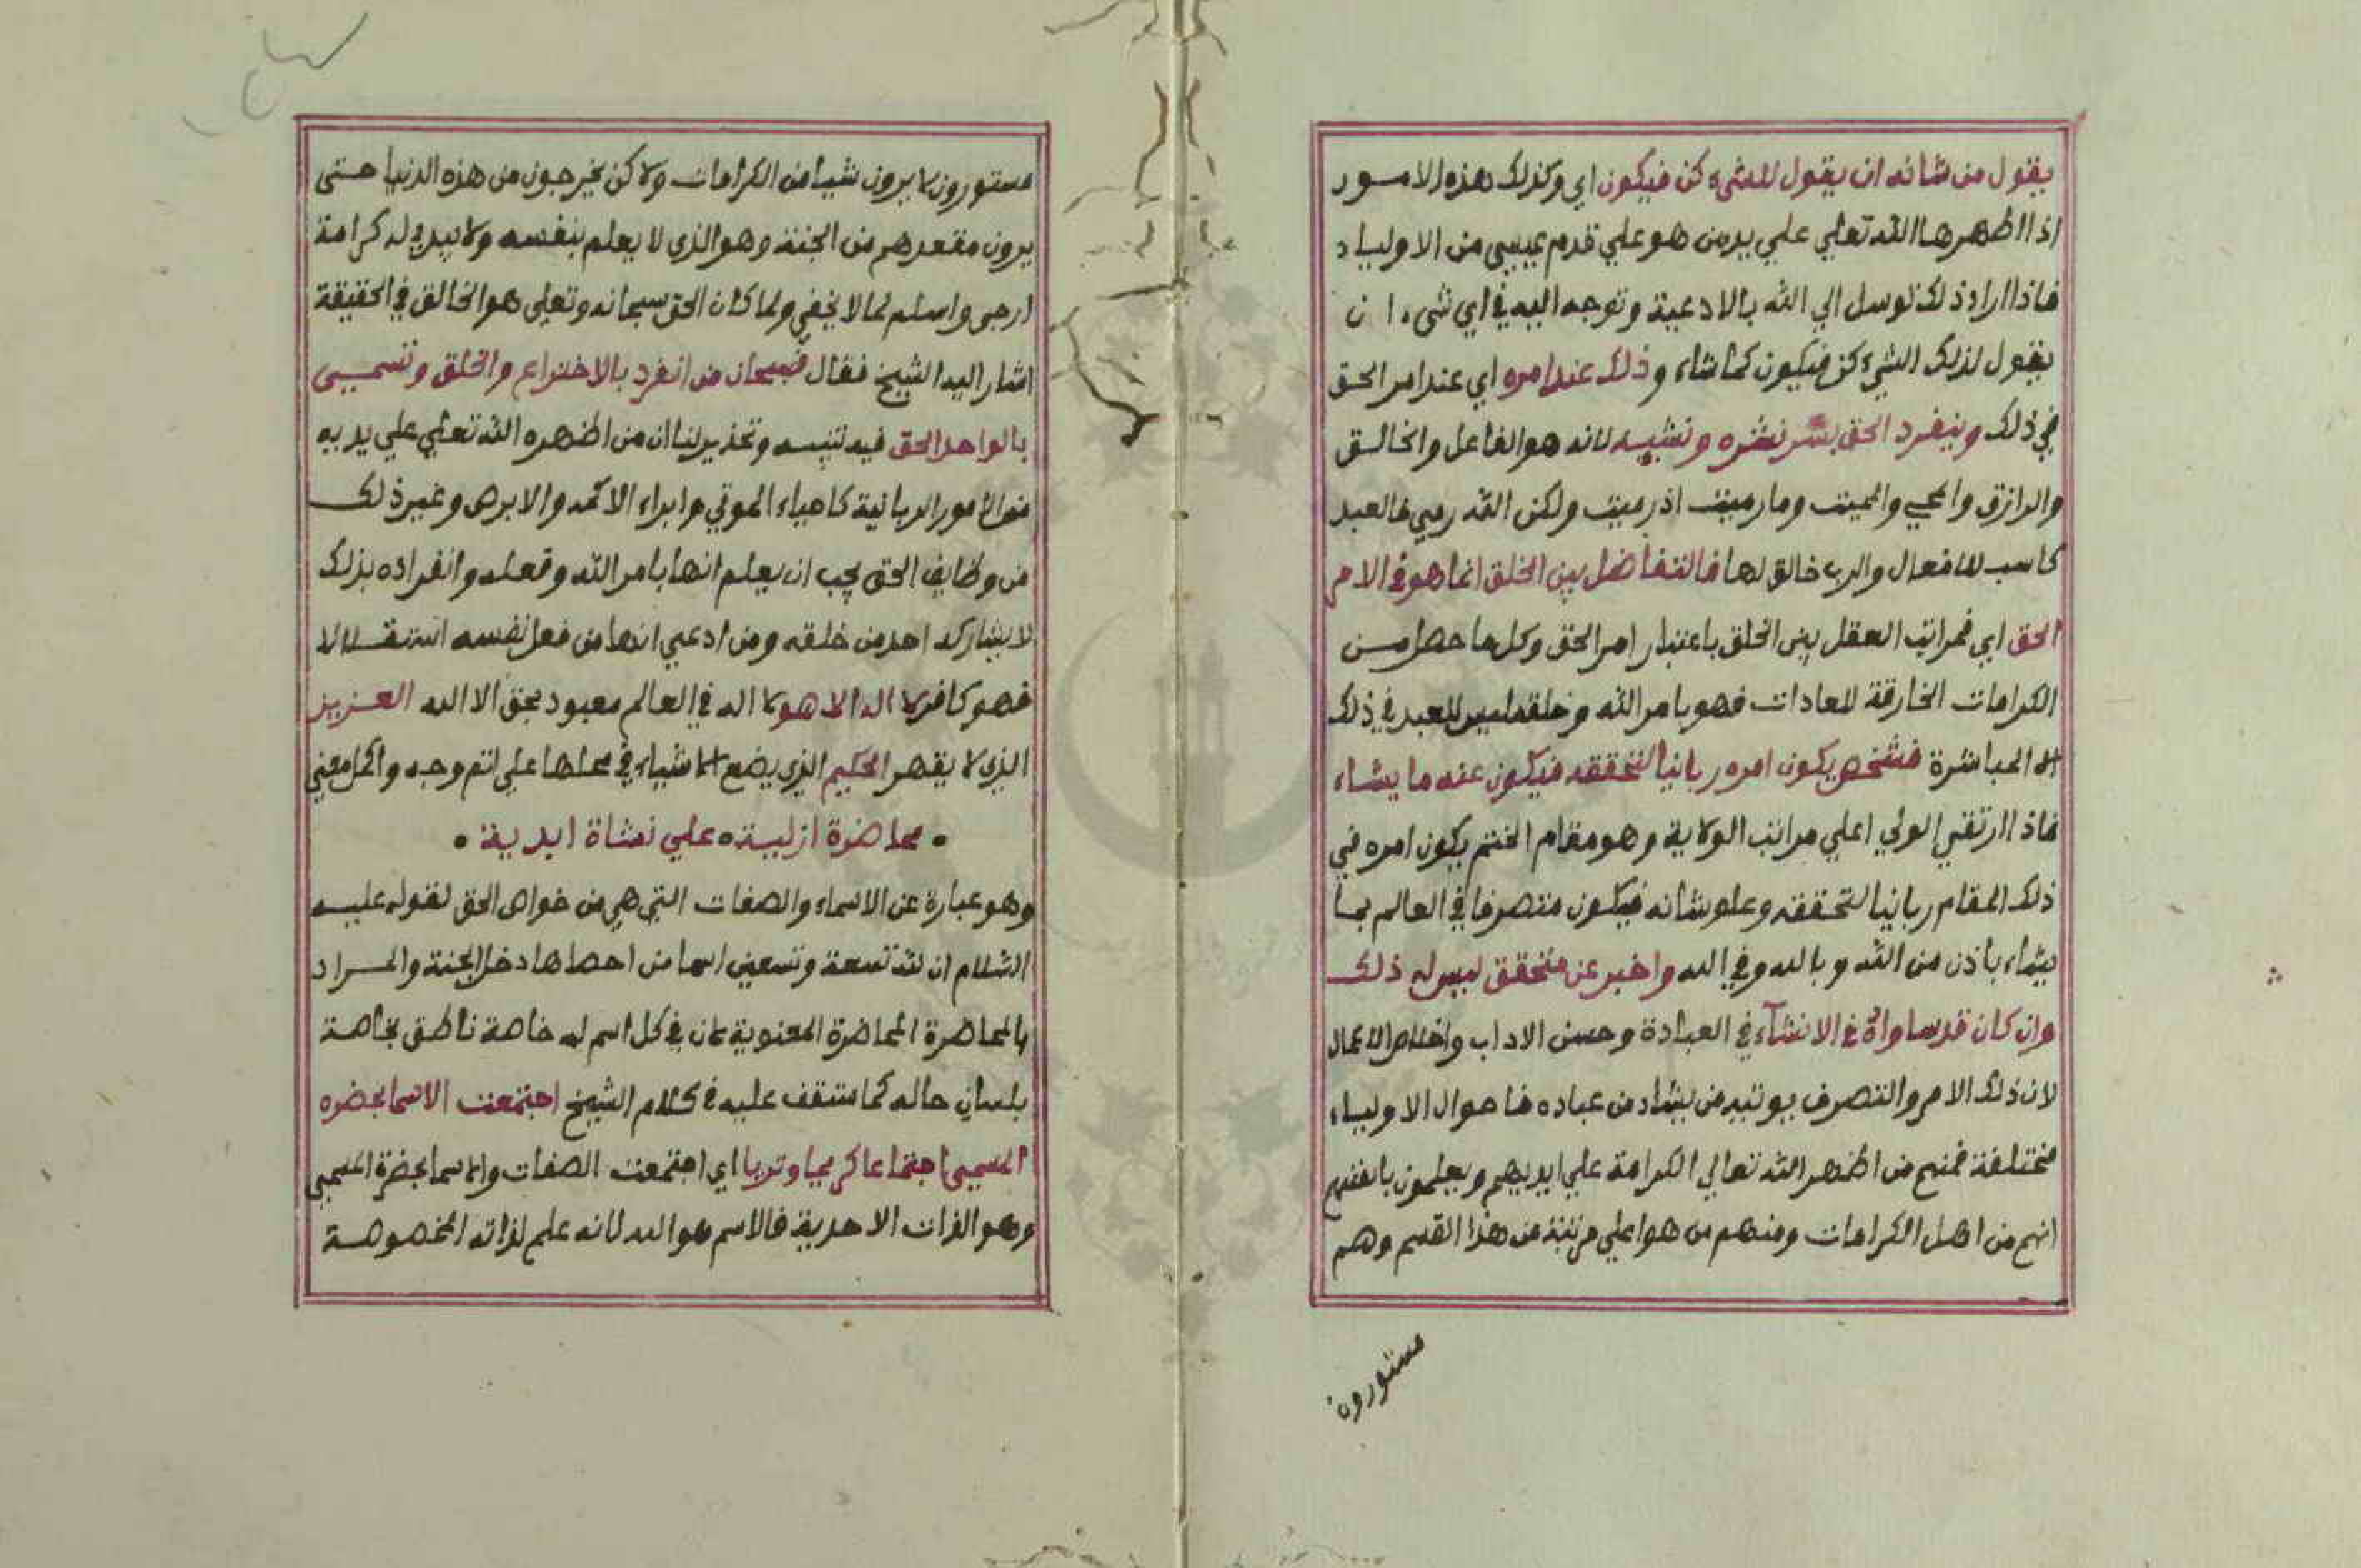 يقول من شانه ان يقول للشيء كن فيكون اي وكذلك هذه الامور
اذا اظهرها الله تعلي علي يد من هو علي قدم عيسي من الاولياء
فاذا اراد ذلك توسل الي الله بالادعية وتوجه اليه في اي شيء ان
يقول لذلك الشيء كن فيكون كما شاء وذلك عند امره اي عند امر الحق
في ذلك وينفرد الحق بسر نشره ونشيه لانه هو الفاعل والخالق
والرازق والمحيي والمميت وما رميت اذ رميت ولكن الله رمي فالعبد
كاسب للافعال والرب خالق لها فالتفاضل بين الخلق انما هو في الامر
الحق اي فمراتب العقل بين الخلق باعتبار امر الحق وكل ما حصل من
الكرامات الخارقة للعادات فهو بامر الله وخلقه ليس للعبد في ذلك
الا المباشرة فشخص يكون امره ربانيا لتحققه فيكون عنه ما يشاء
فاذا ارتقي الولي اعلي مراتب الولاية وهو مقام الختم يكون امره في
ذلك المقام ربانيا لتحققه وعلو شانه فيكون متصرفا في العالم بما
يشاء باذن من الله وبالله وفي الله واخر عن متحقق ليس له ذلك
وان كان قد ساواه في الانشآء في العبادة وحسن الاداب واخلاص الاعمال
لان ذلك الامر والتصرف يوتيه من يشاء من عباده فاحوال الاولياء
مختلفة فمنهم من اظهر الله تعالي الكرامة علي ايديهم ويعلمون بانفسهم
انهم من اهل الكرامات ومنهم من هو اعلي مرتبة من هذا القسم وهم
مستورون
مستورون لا يرون شيا من الكرامات ولاكن يخرجون من هذه الدنيا حتى
يرون مقعدهم من الجنة وهو الذي لا يعلم بنفسه ولا يبدي له كرامة
ارجى واسلم لما لا يخفي ولما كان الحق سبحانه وتعلى هو الخالق في الحقيقة
اشار اليه الشيخ فقال فسبحان من انفرد بالاختراع والخلق وتسمى
بالواحد الحق فيه تنبيه وتحذير لنا ان من اظهره الله تعلي علي يديه
من الامور الربانية كاحياء الموتي وابراء الاكمه والابرص وغير ذلك
من وظايف الحق يجب ان يعلم انها بامر الله وفعله وانفراده بذلك
لا يشاركه احد من خلقه ومن ادعي انها من فعل نفسه استقلالا
فهو كافر لا اله الا هو لا اله في العالم معبود بحق الا الله العزيز
الذي لا يقهر الحكيم الذي يضع الاشياء في محلها علي اتم وجه واكمل معني
محاضرة ازلية علي نشاة ابدية
وهو عبارة عن الاسماء والصفات التي هي من خواص الحق لقوله عليه
السلام ان لله تسعة وتسعين اسما من احصاها دخل الجنة والمراد
بالمحاضرة المحاضرة المعنوية لان في كل اسم له خاصة ناطق بخاصة
بلسان حاله كما ستقف عليه في كلام الشيخ اجتمعت الاسما بحضره
المسمى اجتماعا كريما وتريا اي اجتمعت الصفات والاسما بحضرة المسمي
وهو الذات الاحدية فالاسم هو الله لانه علم لذاته المخصوصة